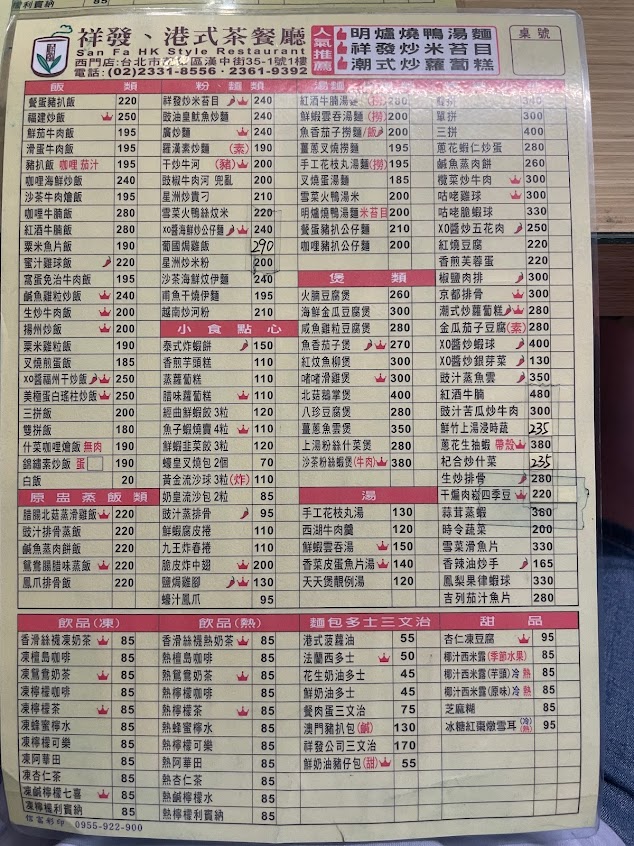 祥發、港式茶餐廳
San Fa HK Style Restaurant
西門店:台北市 區漢中街35-1號1樓
電話:(02)2331-8556・2361-9392
人氣推薦
明爐燒鴨湯麵
祥發炒米苔目
潮式炒蘿蔔糕
桌號
飯 類
餐蛋豬扒飯 220
福建炒飯 250
鮮茄牛肉飯 195
滑蛋牛肉飯 195
豬扒飯 咖哩 茄汁 195
咖哩海鮮炒飯 240
沙茶牛肉燴飯 195
咖哩牛腩飯 280
紅酒牛腩飯 280
粟米魚片飯 190
蜜汁雞球飯 220
窩蛋免治牛肉飯 195
鹹魚雞粒炒飯 240
生炒牛肉飯 200
揚州炒飯 200
粟米雞粒飯 190
叉燒煎蛋飯 185
XO醬福州干炒飯 250
美極蛋白瑤柱炒飯 250
三拼飯 200
雙拼飯 180
什菜咖哩燴飯 無肉 190
錦鏽素炒飯 蛋 190
白飯 20
原盅蒸飯類
腊腸北菇蒸滑雞飯 220
豉汁排骨蒸飯 220
鹹魚蒸肉餅飯 220
鴛鴦腸腊味蒸飯 220
鳳爪排骨飯 220
粉麵類
祥發炒米苔目 240
豉油皇魷魚炒麵 240
廣炒麵 240
羅漢素炒麵 (素) 190
干炒牛河 (豬) 200
豉椒牛肉河 兜亂 200
星洲炒貴刁 210
雪菜火鴨絲炆米 220
XO醬海鮮炒公仔麵 240
葡國焗雞飯 290
星洲炒米粉 200
沙茶海鮮炆伊麵 240
甫魚干燒伊麵 195
越南炒河粉 210
小食點心
泰式炸蝦餅 150
香煎芋頭糕 110
蒸蘿蔔糕 110
腊味蘿蔔糕 110
經曲鮮蝦餃 3粒 120
魚子蝦燒賣 4粒 110
鮮蝦韭菜餃 3粒 120
蠔皇叉燒包 2個 70
黃金流沙球 3粒(炸) 110
奶皇流沙包 2粒 85
豉汁蒸排骨 95
鮮蝦腐皮捲 110
九王炸春捲 110
脆皮炸中翅 200
鹽焗雞腳 130
蠔汁鳳爪 95
湯麵
紅酒牛腩湯麵 (撈) 280
鮮蝦雲吞湯麵 (撈) 200
魚香茄子撈麵/飯 200
薑蔥叉燒撈麵 195
手工花枝丸湯麵(撈) 195
叉燒蛋湯麵 185
雪菜火鴨湯米 210
明爐燒鴨湯麵 米苔目 200
餐蛋豬扒公仔麵 210
咖哩豬扒公仔麵 200
煲 類
火腩豆腐煲 260
海鮮金瓜豆腐煲 300
咸魚雞粒豆腐煲 280
魚香茄子煲 270
紅炆魚柳煲 300
啫啫滑雞煲 300
北菇鵝掌煲 400
八珍豆腐煲 280
薑蔥魚雲煲 350
上湯粉絲什菜煲 280
沙茶粉絲蝦煲(牛肉) 380
湯
手工花枝丸湯 130
西湖牛肉羹 120
鮮蝦雲吞湯 150
香菜皮蛋魚片湯 140
天天煲靚例湯 120
340
單拼 300
三拼 400
蔥花蝦仁炒蛋 280
鹹魚蒸肉餅 260
欖菜炒牛肉 300
咕咾雞球 300
咕咾脆蝦球 330
XO醬炒五花肉 250
紅燒豆腐 220
香煎芙蓉蛋 220
椒鹽肉排 300
京都排骨 300
潮式炒蘿蔔糕 280
金瓜茄子豆腐(素) 280
XO醬炒蝦球 400
XO醬炒銀芽菜 130
豉汁蒸魚雲 350
紅酒牛腩 480
豉汁苦瓜炒牛肉 300
鮮竹上湯浸時蔬 235
蔥花生抽蝦 帶殼 380
杞合炒什菜 235
生炒排骨 280
干煸肉崧四季豆 220
蒜茸蒸蝦 380
時令蔬菜 200
雪菜滑魚片 330
香辣油炒手 165
鳳梨果律蝦球 330
吉列茄汁魚片 280
飲品(凍)
香滑絲襪凍奶茶 85
凍檀島咖啡 85
凍鴛鴦奶茶 85
凍檸檬咖啡 85
凍檸檬茶 85
凍蜂蜜檸水 85
凍檸檬可樂 85
凍阿華田 85
凍杏仁茶 85
凍鹹檸檬七喜 85
凍檸檬利賓納 85
飲品(熱)
香滑絲襪熱奶茶 85
熱檀島咖啡 85
熱鴛鴦奶茶 85
熱檸檬咖啡 85
熱檸檬茶 85
熱蜂蜜檸水 85
熱檸檬可樂 85
熱阿華田 85
熱杏仁茶 85
熱鹹檸檬水 85
熱檸檬利賓納 85
麵包多士三文治
港式菠蘿油 55
法蘭西多士 50
花生奶油多士 45
鮮奶油多士 45
餐肉蛋三文治 75
澳門豬扒包(鹹) 130
祥發公司三文治 170
鮮奶油豬仔包(甜) 55
甜品
杏仁凍豆腐 95
椰汁西米露(季節水果) 85
椰汁西米露(芋頭)冷 熱 85
椰汁西米露(原味)冷 熱 85
芝麻糊 85
冰糖紅棗燉雪耳(冷熱) 95
信富彩印 0955-922-900